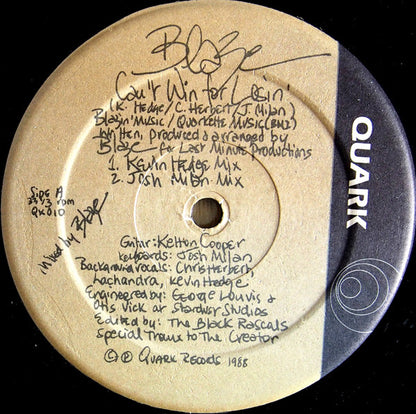 Blaze
Can't Win for Losin'
(K. Hedge/C. Herbert/J. Milan)
Blazin' Music/Quarkette Music (BMI)
written, produced & arranged by
Blaze for Last Minute Productions
1. Kevin Hedge Mix
2. Josh Milan Mix
Side A
33 1/3 rpm
QK010
mixed by Blaze
QUARK
Guitar: Kelton Cooper
keyboards: Josh Milan
Background vocals: Chris Herbert,
Kachandra, Kevin Hedge
Engineered by: George Louvis &
Otis Vick at Stardust Studios
Edited by: The Black Rascals
Special Thanx to The Creator
© ℗ Quark Records 1988